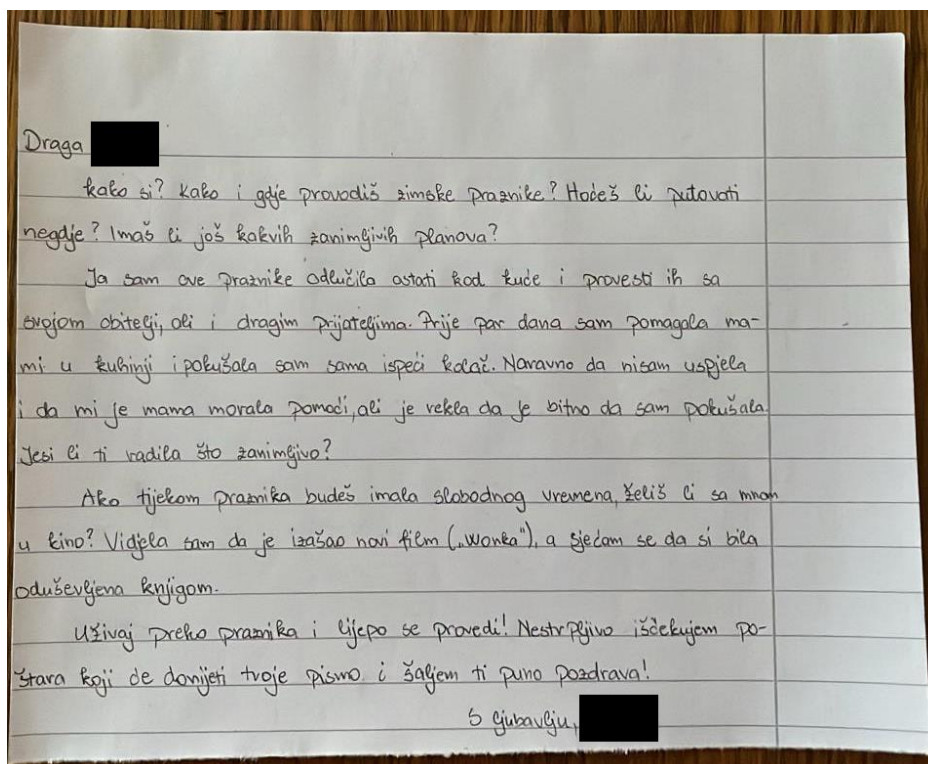 Draga
kako si? Kako i gdje provodiš zimske praznike? Hoćeš li putovati
negdje? Imaš li još kakvih zanimljivih planova?
Ja sam ove praznike odlučila ostati kod kuće i provesti ih sa
svojom obitelji, ali i dragim prijateljima. Prije par dana sam pomagala ma-
mi u kuhinji i pokušala sam sama ispeći kolač. Naravno da nisam uspjela
i da mi je mama morala pomoći, ali je rekla da je bitno da sam pokušala.
Jesi li ti radila što zanimljivo?
Ako tijekom praznika budeš imala slobodnog vremena, želiš li sa mnom
u kino? Vidjela sam da je izašao novi film („Wonka"), a sjećam se da si bila
oduševljena knjigom.
Uživaj preko praznika i lijepo se provedi! Nestrpljivo iščekujem po-
štara koji će donijeti tvoje pismo i šaljem ti puno pozdrava!
S ljubavlju,